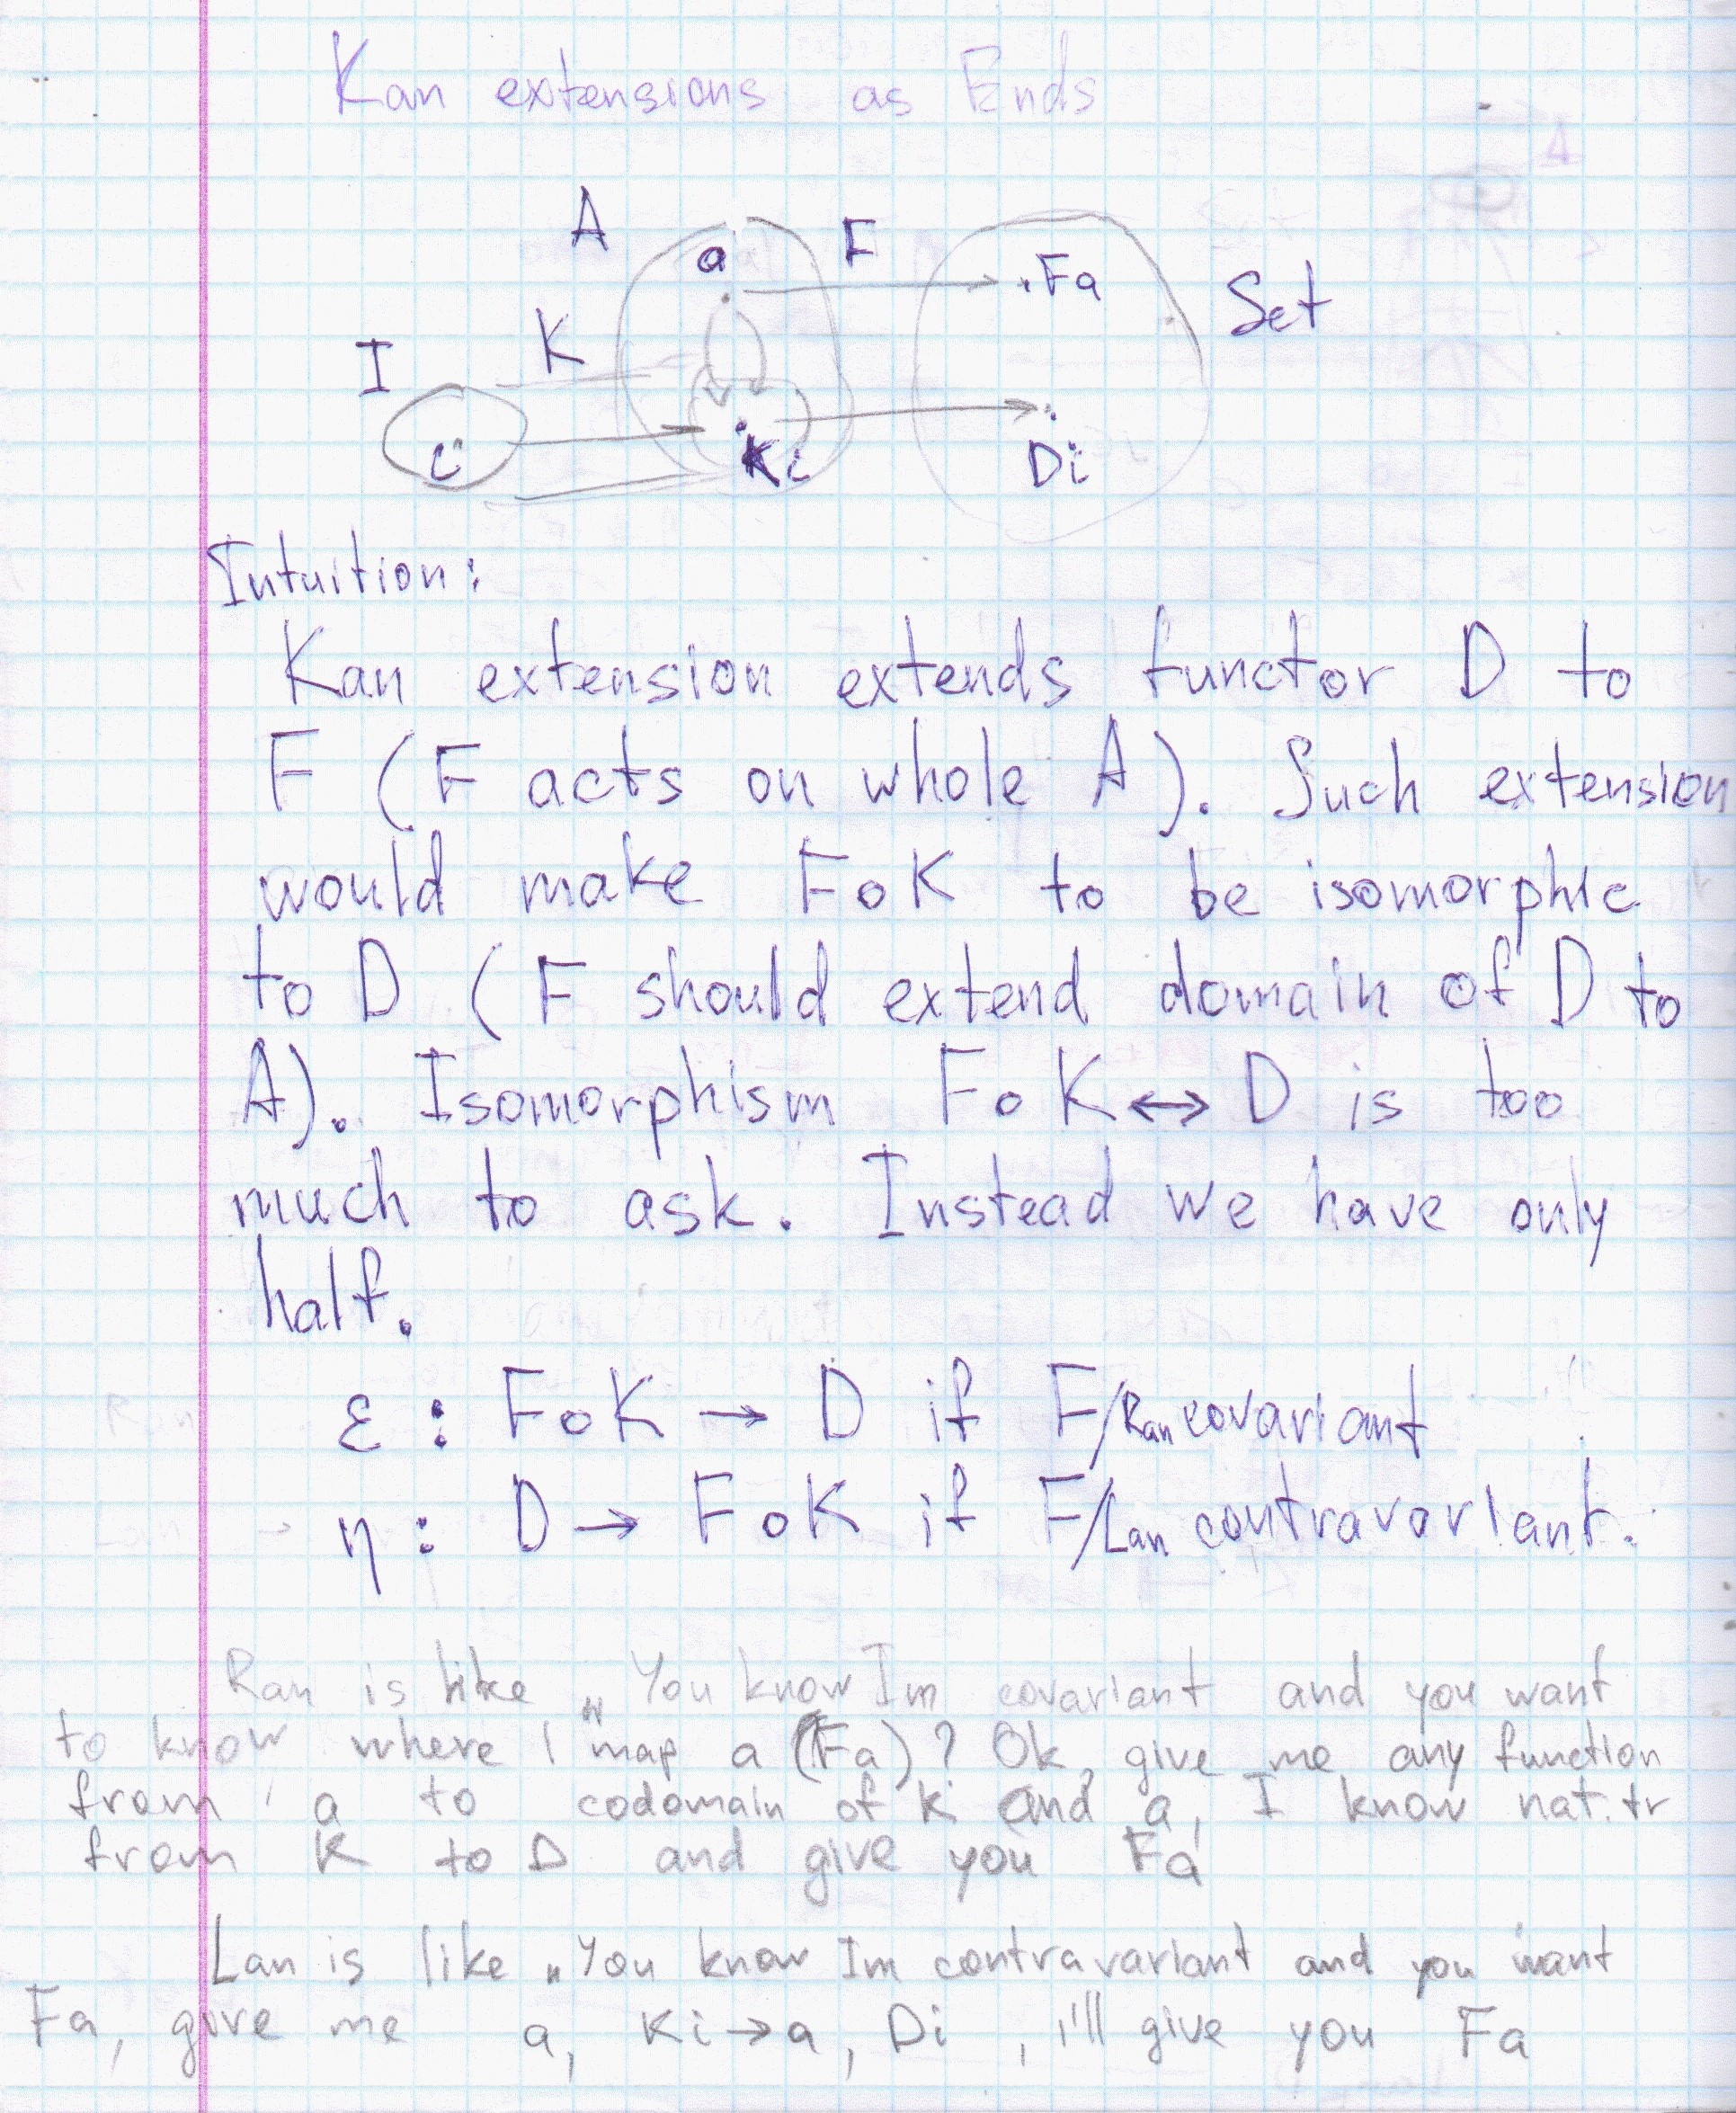 Kan extensions as Ends
A
a
F
Fa
Set
I
K
i
Ki
Di
Intuition:
Kan extension extends functor D to
F (F acts on whole A). Such extension
would make F∘K to be isomorphic
to D (F should extend domain of D to
A). Isomorphism F∘K ↔ D is too
much to ask. Instead we have only
half.
ε : F∘K → D if F/Ran covariant
η : D → F∘K if F/Lan contravariant.
Ran is like „You know Im covariant and you want
to know where I map a (Fa)? Ok, give me any function
from a to codomain of K and a, I know nat.tr
from K to D and give you Fa
Lan is like „You know Im contravariant and you want
Fa, give me a, Ki→a, Di, i'll give you Fa